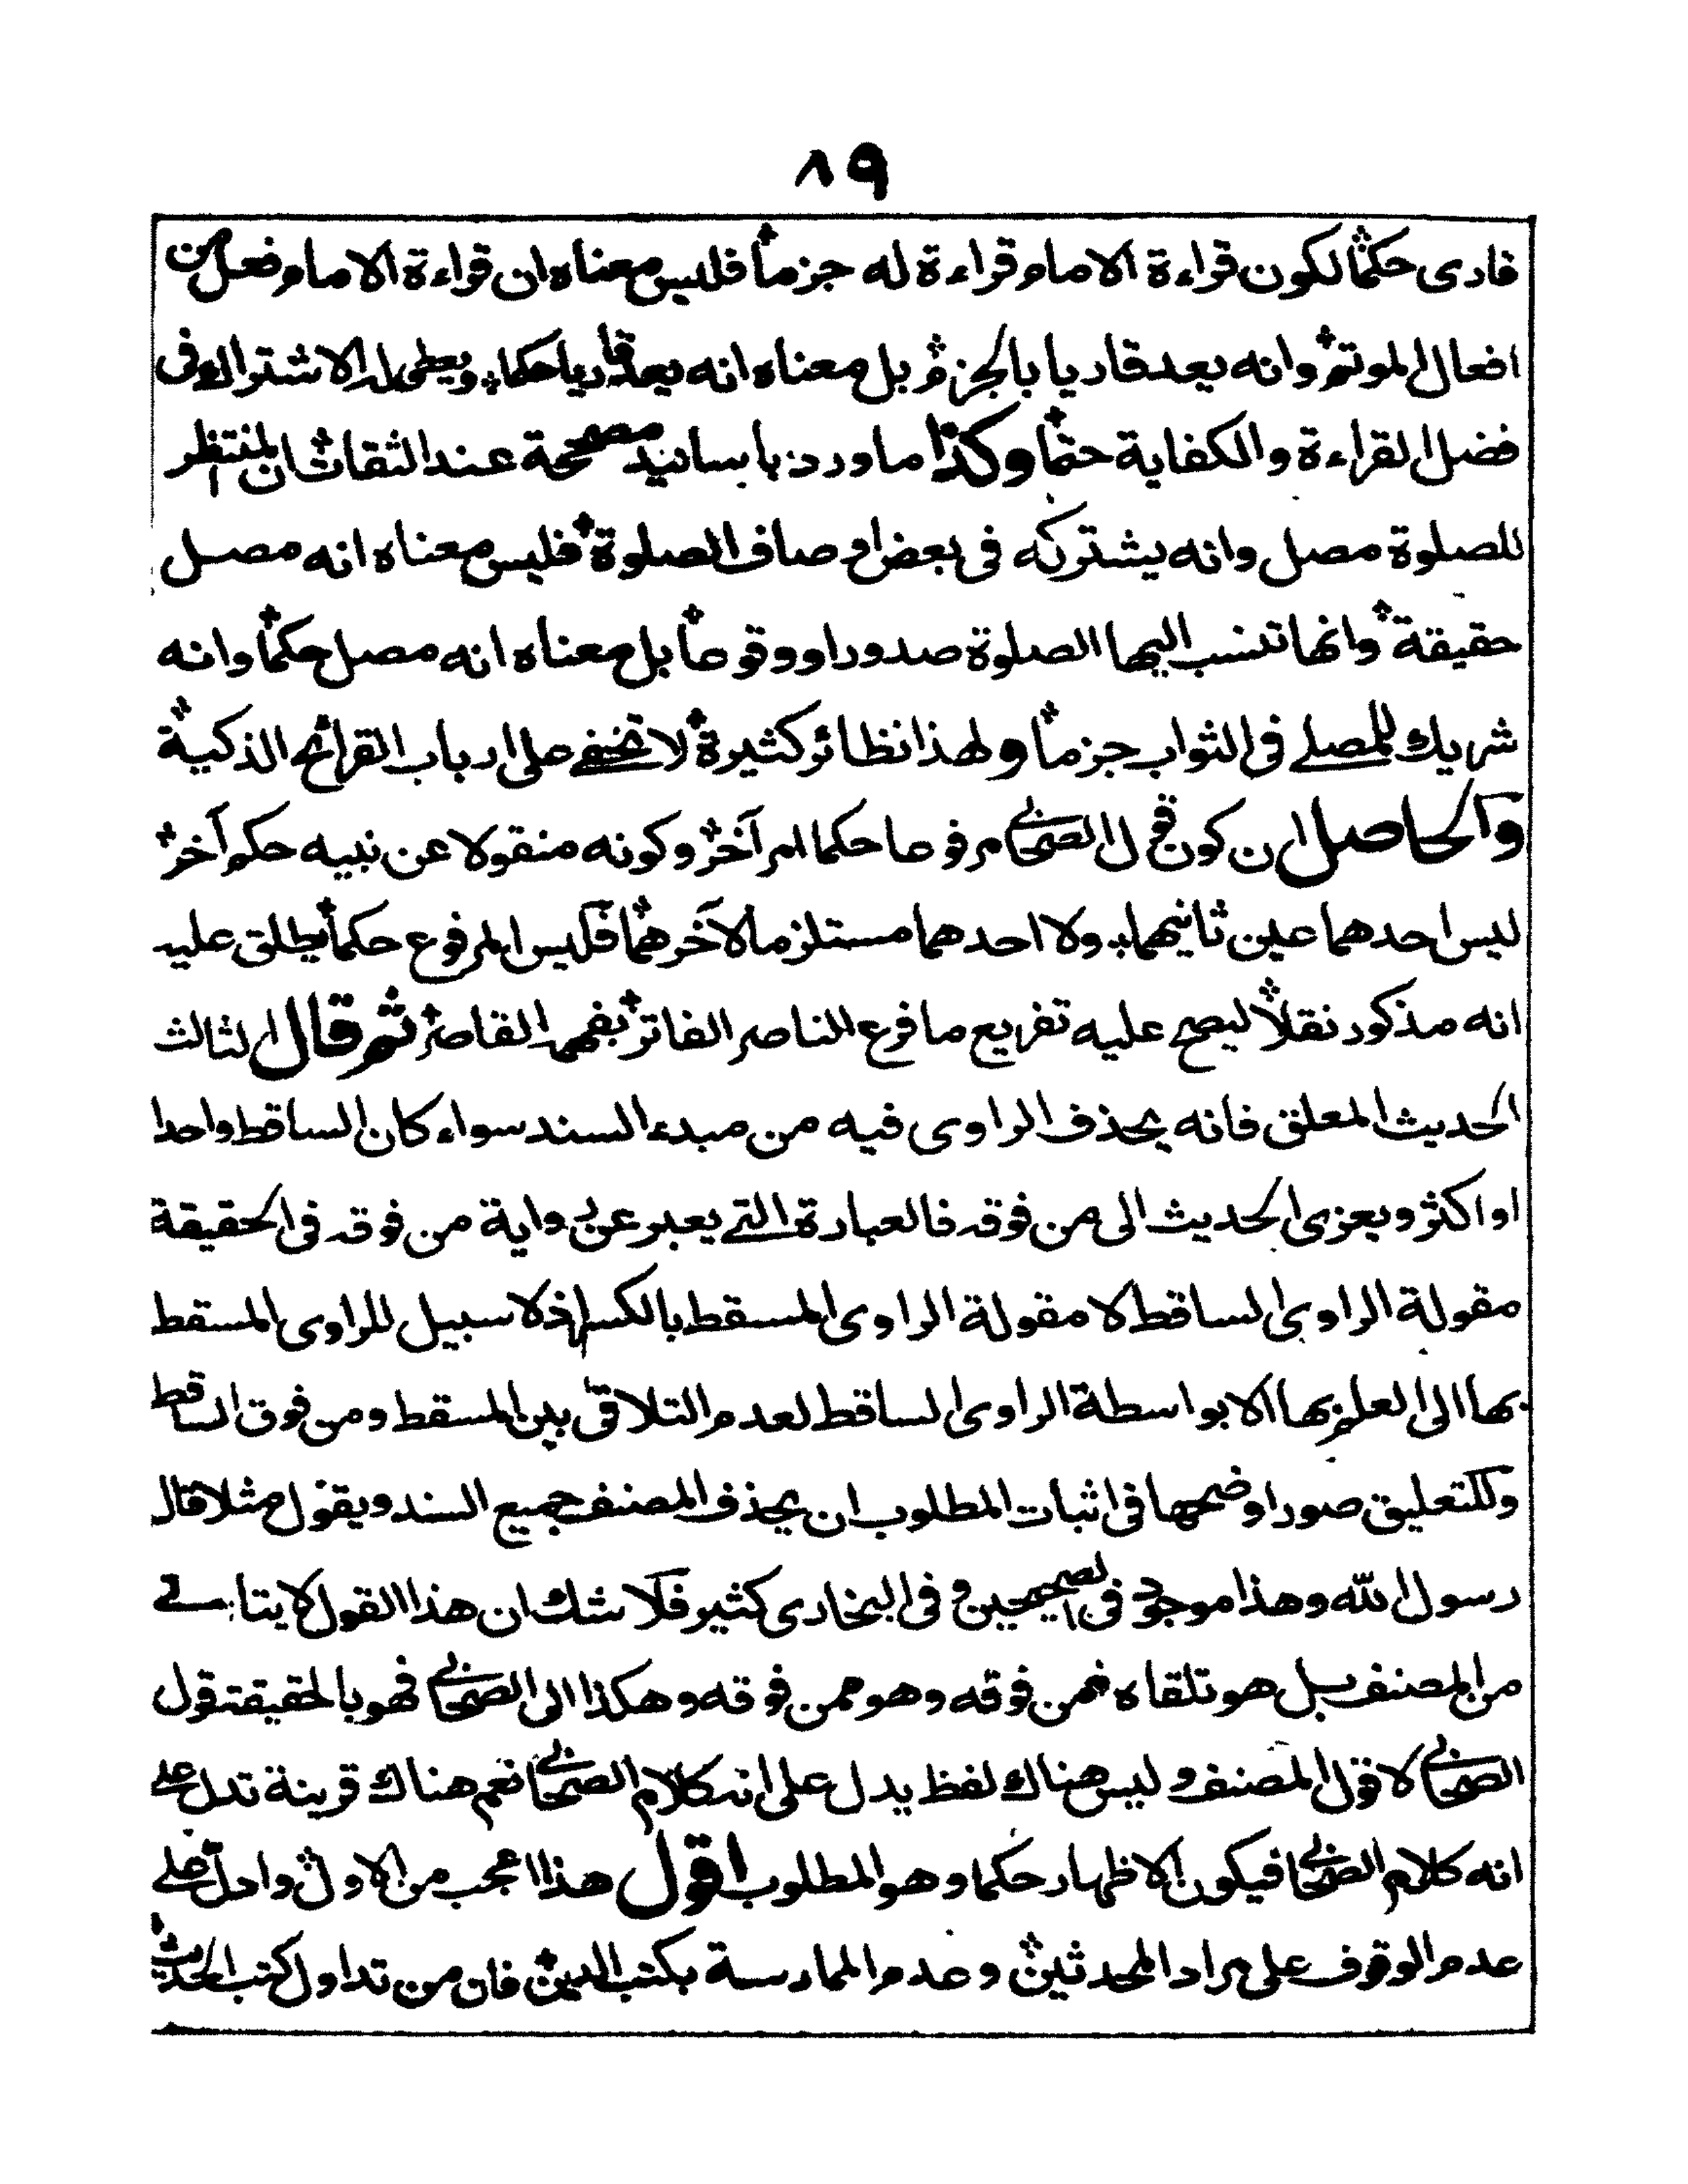 ٨٩
قارى حكما لكون قراءة الامام قراءة له جزما فليس معناه ان قراءة الامام فعل من
افعال الموتم وانه يعد قاريا بالجزم بل معناه انه يعد قاريا حكما ويعطى له الاشتراك فى
فضل القراءة والكفاية حتما وكذا ما ورد باسانيد مصححة عند الثقات ان المنتظر
للصلوة مصل وانه يشتركه فى بعض اوصاف الصلوة فليس معناه انه مصل
حقيقة وانها تنسب اليها الصلوة صدورا ووقوعا بل معناه انه مصل حكما وانه
شريك للمصلے فى الثواب جزما ولهذا نظائر كثيرة لا تخفے على ارباب القرائح الذكية
والحاصل ان كون قول الصحابى مرفوعا حكما امر آخر وكونه منقولا عن نبيه حكم آخر
ليس احدهما عين ثانيهما ولا احدهما مستلزما لآخرهما فليس المرفوع حكما يطلق عليه
انه مذكور نقلا ليصح عليه تفريع ما فرع الناصر الفاتر بفهمه القاصر ثم قال الثالث
الحديث المعلق فانه يحذف الراوى فيه من مبدء السند سواء كان الساقط واحدا
او اكثر ويعزى الحديث الى من فوقه فالعبارة التے يعبر عن رواية من فوقه فى الحقيقة
مقولة الراوى الساقط لا مقولة الراوى المسقط بالكسر اذ لا سبيل للراوى المسقط
بها الى العلم بها الا بواسطة الراوى الساقط لعدم التلاقى بين المسقط ومن فوق الساقط
وللتعليق صور اوضحها فى اثبات المطلوب ان يحذف المصنف جميع السند ويقول مثلا قال
رسول الله وهذا موجود فى الصحيحين وفى البخارى كثير فلا شك ان هذا القول لا يتاتى
من المصنف بل هو تلقاه فمن فوقه وهو ممن فوقه وهكذا الى الصحابى فهو بالحقيقة قول
الصحابى لا قول المصنف وليس هناك لفظ يدل على انه كلام الصحابى نعم هناك قرينة تدل على
انه كلام الصحابى فيكون الاظهار حكما وهو المطلوب اقول هذا اعجب من الاول وادل على
عدم الوقوف على مراد المحدثين وعدم الممارسة بكتب الدين فان من تداول كتب الحديث